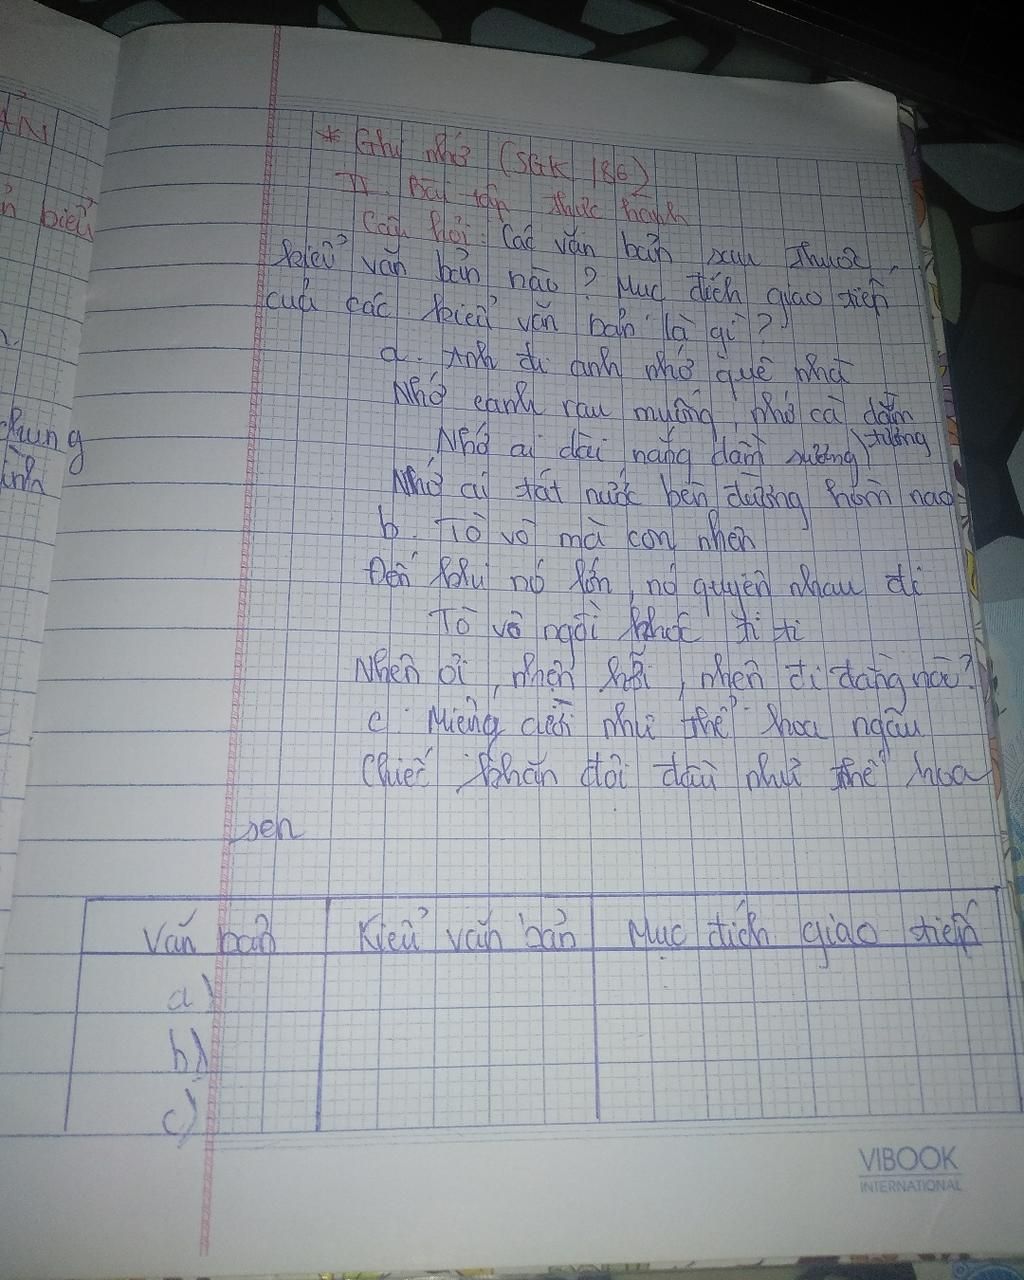 ẢN
n biểu
chung
tình
* Ghi nhớ (SGK/86)
II. Bài tập thực hành
Câu hỏi: Các văn bản sau thuộc
kiểu văn bản nào? Mục đích giao tiếp
của các kiểu văn bản là gì?
a. Anh đi anh nhớ quê nhà
Nhớ canh rau muống, nhớ cà dầm
tương
Nhớ ai dãi nắng dầm sương
Nhớ ai tát nước bên đường hôm nao
b. Tò vò mà con nhện
Đến khi nó lớn, nó quyện nhau đi
Tò vò ngồi khóc tỉ ti
Nhện ơi, nhện hỡi, nhện đi đằng nào?
c. Miệng cười như thể hoa ngâu
Chiếc khăn đội đầu như thể hoa
sen
Văn bản Kiểu văn bản Mục đích giao tiếp
a)
b)
c)
VIBOOK
INTERNATIONAL